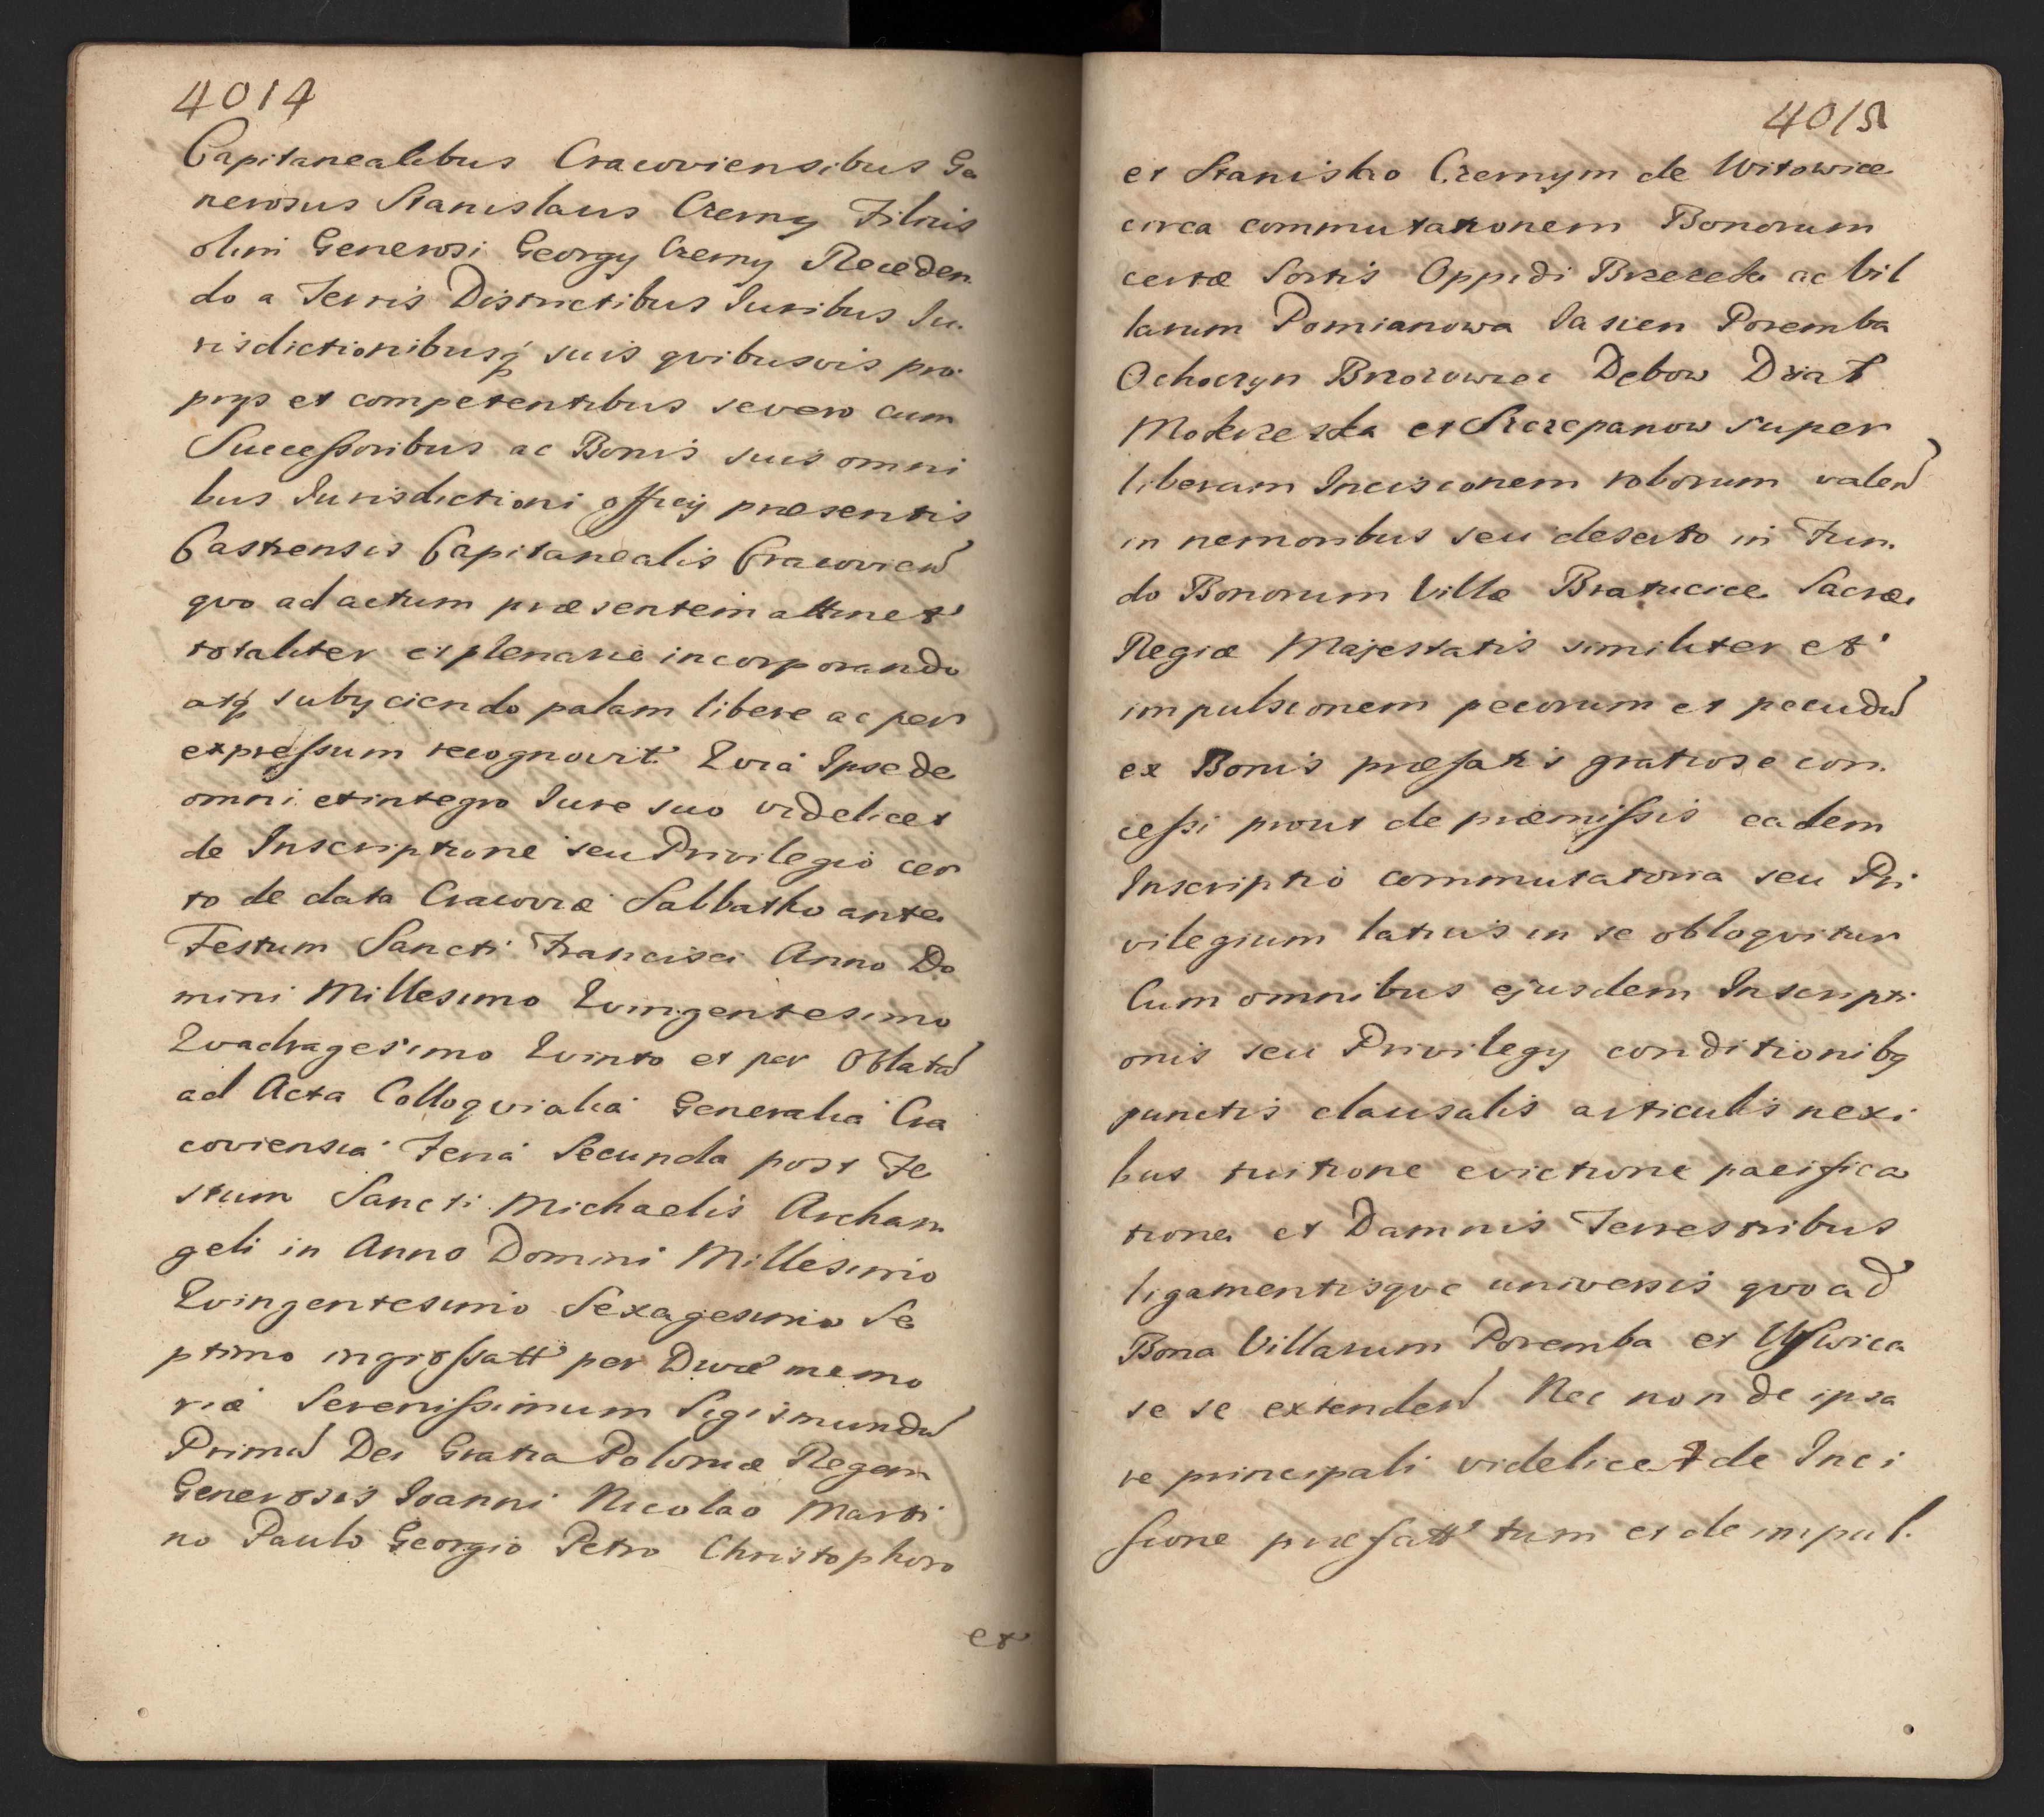 4014
Capitanealibus Cracoviensibus Ge
nerosus Stanislaus Czerny Filius
olim Generosi Georgy Czerny Receden
do a Terris Districtibus Iuribus Iu
risdictionibusq suis qvibusvis pro
prys et competentibus se vero cum
Succeßoribus ac Bonis suis omni
bus Iurisdictioni officy præsentis
Castrensis Capitanealis Cracovien
qvo ad actum præsentem attinet
totaliter et plenarie incorporando
atq subyciendo palam libere ac per
expreßum recognovit Qvia Ipse de
omni et integro Iure suo videlicet
de Inscriptione seu Privilegio cer
to de data Cracoviæ Sabbatho ante
Festum Sancti Francisci Anno Do
mini Millesimo Qvingentesimo
Qvadragesimo Qvinto et per Oblatam
ad Acta Colloqvialia Generalia Cra
coviensia Feria Secunda post Fe
stum Sancti Michaelis Archan
geli in Anno Domini Millesimo
Qvingentesimo Sexagesimo Se
ptimo ingroßatt per Divæ memo
riæ Sereni߀imum Sigismundum
Primum Dei Gratia Poloniæ Regem
Generosis Ioanni Nicolao Marti
no Paulo Georgio Petro Christophoro
et
4015
et Stanislao Czernym de Witowice
circa commutationem Bonorum
certæ Sortis Oppidi Brzezek ac Vil
larum Pomianowa Iasien Poremba
Ochoczyn Brzozowiec Dębow Dział
Mokrzeska et Szczepanow super
liberam Incisionem roborum valen
in nemoribus seu deserto in Fun
do Bonorum Villæ Bratucice Sacræ
Regiæ Majestatis similiter et
impulsionem pecorum et pecudum
ex Bonis præfatis gratiose con
ceßi prout de præmißis eadem
Inscriptio commutatoria seu Pri
vilegium latius in se obloqvitur
Cum omnibus ejusdem Inscripti
onis seu Privilegy conditionibq
punctis clausulis articulis nexi
bus tuitione evictione pacifica
tione et Damnis Terrestribus
ligamentisqve universis qvo ad
Bona Villarum Poremba et Uszwica
se se extenden Nec non de ipsa
re principali videlicet de Inci
sione præfatt tum et de impul